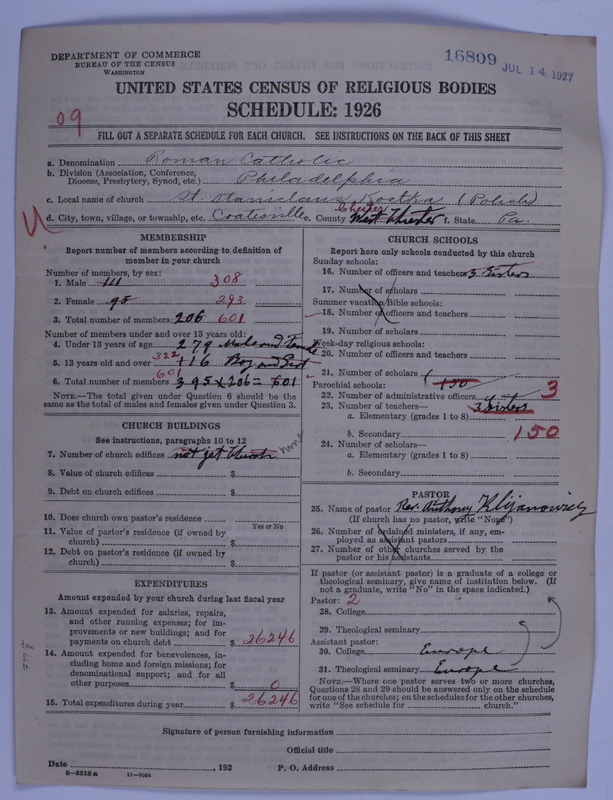 DEPARTMENT OF COMMERCE
BUREAU OF THE CENSUS
WASHINGTON
16809 JUL 14 1927
UNITED STATES CENSUS OF RELIGIOUS BODIES
SCHEDULE: 1926
09
FILL OUT A SEPARATE SCHEDULE FOR EACH CHURCH. SEE INSTRUCTIONS ON THE BACK OF THIS SHEET
a. Denomination Roman Catholic
b. Division (Association, Conference,
Diocese, Presbytery, Synod, etc.) Philadelphia
c. Local name of church St. Stanislaus Kostka (Polish)
d. City, town, village, or township, etc. Coatesville e. County West Chester Chester f. State Pa.
MEMBERSHIP
Report number of members according to definition of
member in your church
Number of members, by sex:
1. Male 111 308
2. Female 95 293
3. Total number of members 206 601
Number of members under and over 13 years old:
4. Under 13 years of age 279 Male and Female
5. 13 years old and over 322 116 Boy and Girl
6. Total number of members 601 395 + 206 = 601
NOTE.—The total given under Question 6 should be the
same as the total of males and females given under Question 3.
CHURCH BUILDINGS
See instructions, paragraphs 10 to 12
7. Number of church edifices not yet Church none
8. Value of church edifices $
9. Debt on church edifices $
10. Does church own pastor's residence
Yes or No
11. Value of pastor's residence (if owned by
church) $
12. Debt on pastor's residence (if owned by
church) $
EXPENDITURES
Amount expended by your church during last fiscal year
13. Amount expended for salaries, repairs,
and other running expenses; for im-
provements or new buildings; and for
payments on church debt $ 26246
14. Amount expended for benevolences, in-
cluding home and foreign missions; for
denominational support; and for all
other purposes $ 0
15. Total expenditures during year $ 26246
CHURCH SCHOOLS
Report here only schools conducted by this church
Sunday schools:
16. Number of officers and teachers 3 Sisters
17. Number of scholars
Summer vacation Bible schools:
18. Number of officers and teachers
19. Number of scholars
Week-day religious schools:
20. Number of officers and teachers
21. Number of scholars 150
Parochial schools:
22. Number of administrative officers 3
23. Number of teachers— 3 Sisters
a. Elementary (grades 1 to 8)
b. Secondary 150
24. Number of scholars—
a. Elementary (grades 1 to 8)
b. Secondary
PASTOR
25. Name of pastor Rev. Anthony Klijanowicz
(If church has no pastor, write "None")
26. Number of ordained ministers, if any, em-
ployed as assistant pastors
27. Number of other churches served by the
pastor or his assistants
If pastor (or assistant pastor) is a graduate of a college or
theological seminary, give name of institution below. (If
not a graduate, write "No" in the space indicated.)
Pastor: 2
28. College
29. Theological seminary
Assistant pastor:
30. College Europe
31. Theological seminary Europe
NOTE.—Where one pastor serves two or more churches,
Questions 28 and 29 should be answered only on the schedule
for one of the churches; on the schedules for the other churches,
write "See schedule for church."
Signature of person furnishing information
Official title
Date , 192 P. O. Address
8—5518 a 11—9034